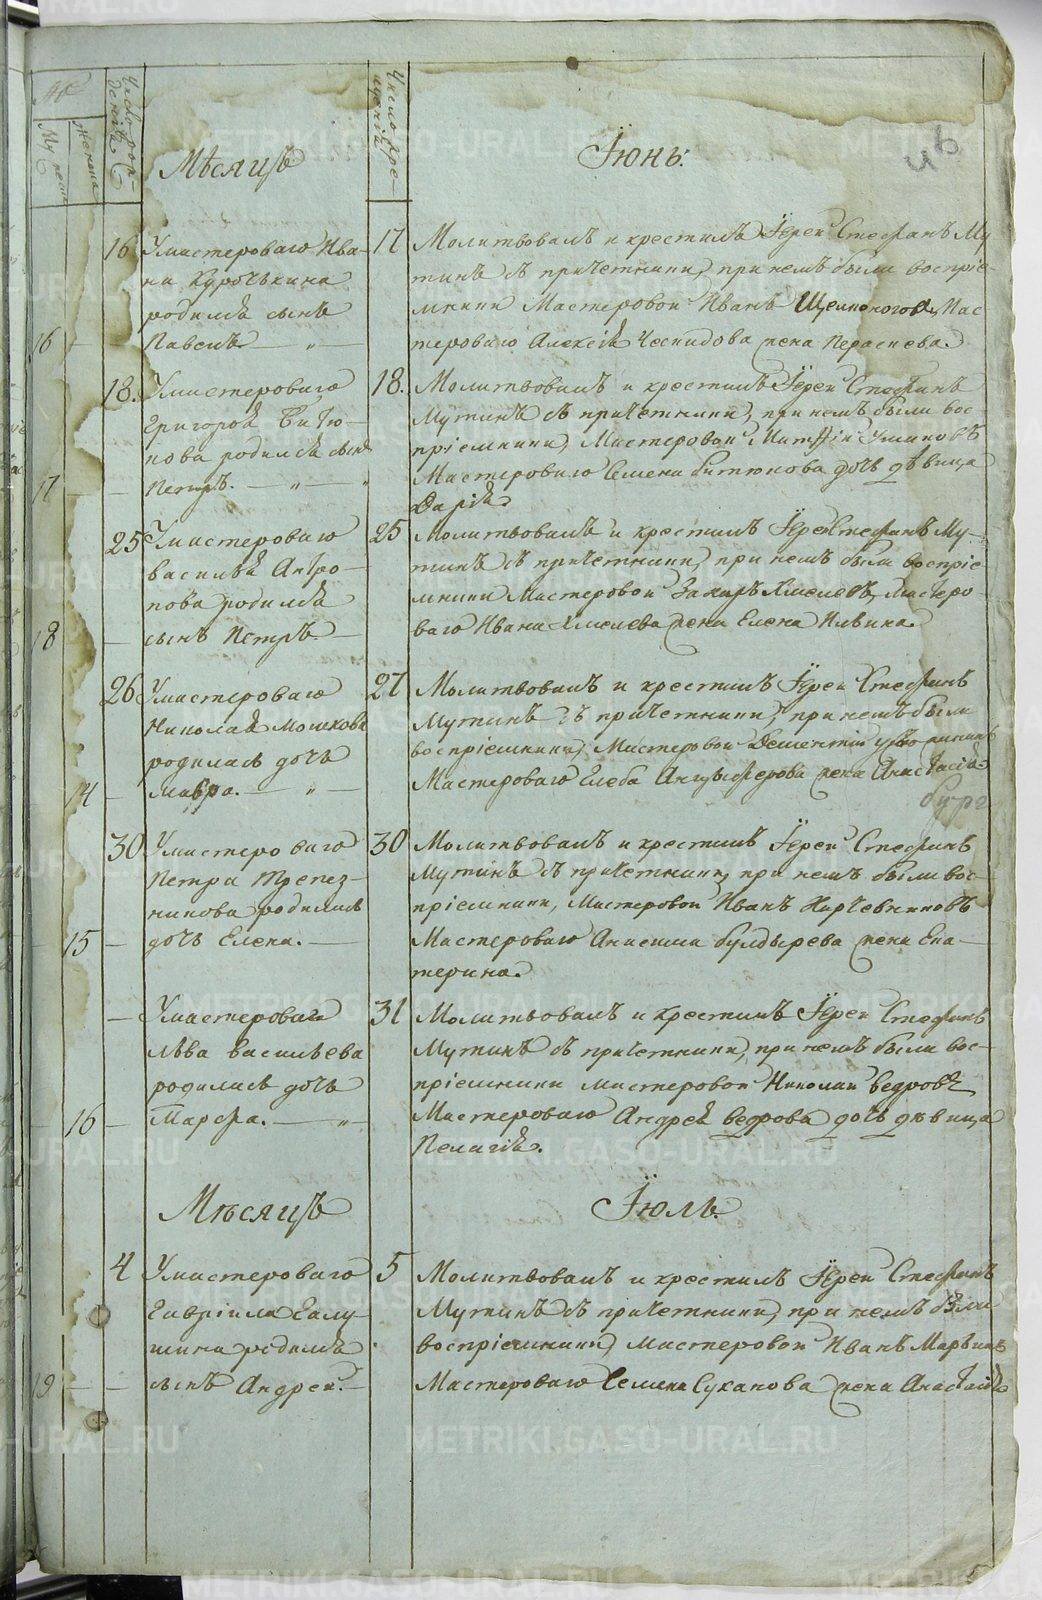 Му жеска
Женска
Число рож-
денiя
Число кре-
щенiя
Мѣсяцъ Їюнь.
16 Умастероваго Ива-
на Курочькина
родился сынъ
16 — Павелъ. — „ —
17 Молитвовалъ и крестилъ Їерей Стефанъ Му
тинъ съ причетники, при немъ были воспрiе-
мники Мастеровой Иванъ Щелконоговъ, Мас
тероваго Алексѣя жена
18. Умастероваго
Григорья Битю-
кова родился сынъ
17 — — Петръ. — „ — „
18. Молитвовалъ и крестилъ Їерей Стефанъ
Мутинъ съ причетники, при немъ были вос-
прiемники, Мастеровой Ушаковъ
Мастероваго Семена Битюкова дочь дѣвица
Дарiя.
25 Умастероваго
василья Антро-
пова родился
18 — сынъ Петръ. —
25 Молитвовалъ и крестилъ Їерей Стефанъ Му-
тинъ съ причетники, при немъ были воспрiе
мники Мастеровой Захаръ Хмелевъ, Мастеро-
ваго Ивана Хмелева жена Елена Ильина.
26 Умастероваго
Николая Мошкова
родилась дочь
14 — Мавра. — „ —
27 Молитвовалъ и крестилъ Їерей Стефанъ
Мутинъ съ причетники, при немъ были
воспрiемники, Мастеровой Дементiй
Мастероваго Глеба Анцыферова жена Анастасiя
30 Умастероваго
Петра Трапез-
никова родилась
15 — дочь Елена. —
30 Молитвовалъ и крестилъ Їерей Стефанъ
Мутинъ съ причетники, при немъ были вос-
прiемники, Мастеровой Иванъ Харчевниковъ
Мастероваго Булдырева жена Ека-
терина.
— Умастероваго
Лѣва васильева
родилась дочь
16 — Марфа. — „ —
31 Молитвовалъ и крестилъ Їерей Стефанъ
Мутинъ съ причетники, при немъ были вос-
прiемники мастеровой Николай ведровъ
Мастероваго Андрея ведрова дочь дѣвица
Пелагiя.
Мѣсяцъ Їюль.
4 Умастероваго
Гаврiила Галу-
шина родился
19 — — сынъ Андрей. —
5 Молитвовалъ и крестилъ Їерей Стефанъ
Мутинъ съ причетники, при немъ были
воспрiемники, мастеровой Иванъ Марьинъ
Мастероваго Семена Суханова жена Анастасiя
METRIKI.GASO-URAL.RU